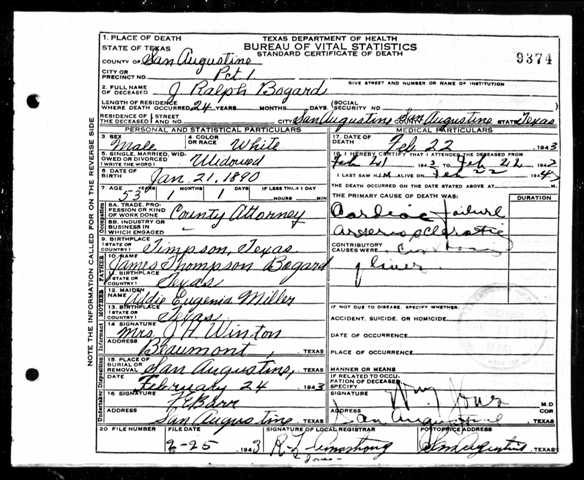 1. PLACE OF DEATH
STATE OF TEXAS
TEXAS DEPARTMENT OF HEALTH
BUREAU OF VITAL STATISTICS
STANDARD CERTIFICATE OF DEATH
9374
COUNTY OF San Augustine
CITY OR PRECINCT NO. Pct. 1
GIVE STREET AND NUMBER OR NAME OF INSTITUTION
2. FULL NAME OF DECEASED J Ralph Bogard
LENGTH OF RESIDENCE WHERE DEATH OCCURRED 24 YEARS MONTHS DAYS (SOCIAL SECURITY NO.
RESIDENCE OF THE DECEASED STREET AND NO. CITY San Augustine San Augustine STATE Texas
PERSONAL AND STATISTICAL PARTICULARS
3. SEX Male
4. COLOR OR RACE White
5. SINGLE, MARRIED, WIDOWED OR DIVORCED (WRITE) Widowed
6. DATE OF BIRTH Jan. 21, 1890
7. AGE 53 YEARS 1 MONTHS 1 DAYS IF LESS THAN 1 DAY HOURS MIN.
8A. TRADE, PROFESSION OR KIND OF WORK DONE County Attorney
8B. INDUSTRY OR BUSINESS IN WHICH ENGAGED
9. BIRTHPLACE (STATE OR COUNTRY) Timpson, Texas
10. NAME James Thompson Bogard
11. BIRTHPLACE (STATE OR COUNTRY) Texas
12. MAIDEN NAME Addie Eugenia Miller
13. BIRTHPLACE (STATE OR COUNTRY) Texas
14. SIGNATURE Mrs. J. H. Winton
ADDRESS Beaumont, TEXAS
15. PLACE OF BURIAL OR REMOVAL San Augustine, TEXAS
DATE February 24 1943
16. SIGNATURE
ADDRESS San Augustine TEXAS
MEDICAL PARTICULARS
17. DATE OF DEATH Feb 22 1943
18. I HEREBY CERTIFY THAT I ATTENDED THE DECEASED FROM
I LAST SAW H im ALIVE ON Feb 22 194
THE DEATH OCCURRED ON THE DATE STATED ABOVE AT M.
THE PRIMARY CAUSE OF DEATH WAS:
DURATION
Cardiac failure
CONTRIBUTORY CAUSES WERE
liver
IF NOT DUE TO DISEASE, SPECIFY WHETHER:
ACCIDENT, SUICIDE, OR HOMICIDE
DATE OF OCCURRENCE
PLACE OF OCCURRENCE
MANNER OR MEANS
IF RELATED TO OCCUPATION OF DECEASED SPECIFY
SIGNATURE M.D.
ADDRESS San Augustine TEXAS
20. FILE NUMBER
FILE DATE 2-25 1943
SIGNATURE OF LOCAL REGISTRAR R L Armstrong
POSTOFFICE ADDRESS San Augustine
NOTE THE INFORMATION CALLED FOR ON THE REVERSE SIDE
Occupation
FATHER
MOTHER
Informant
Undertaker